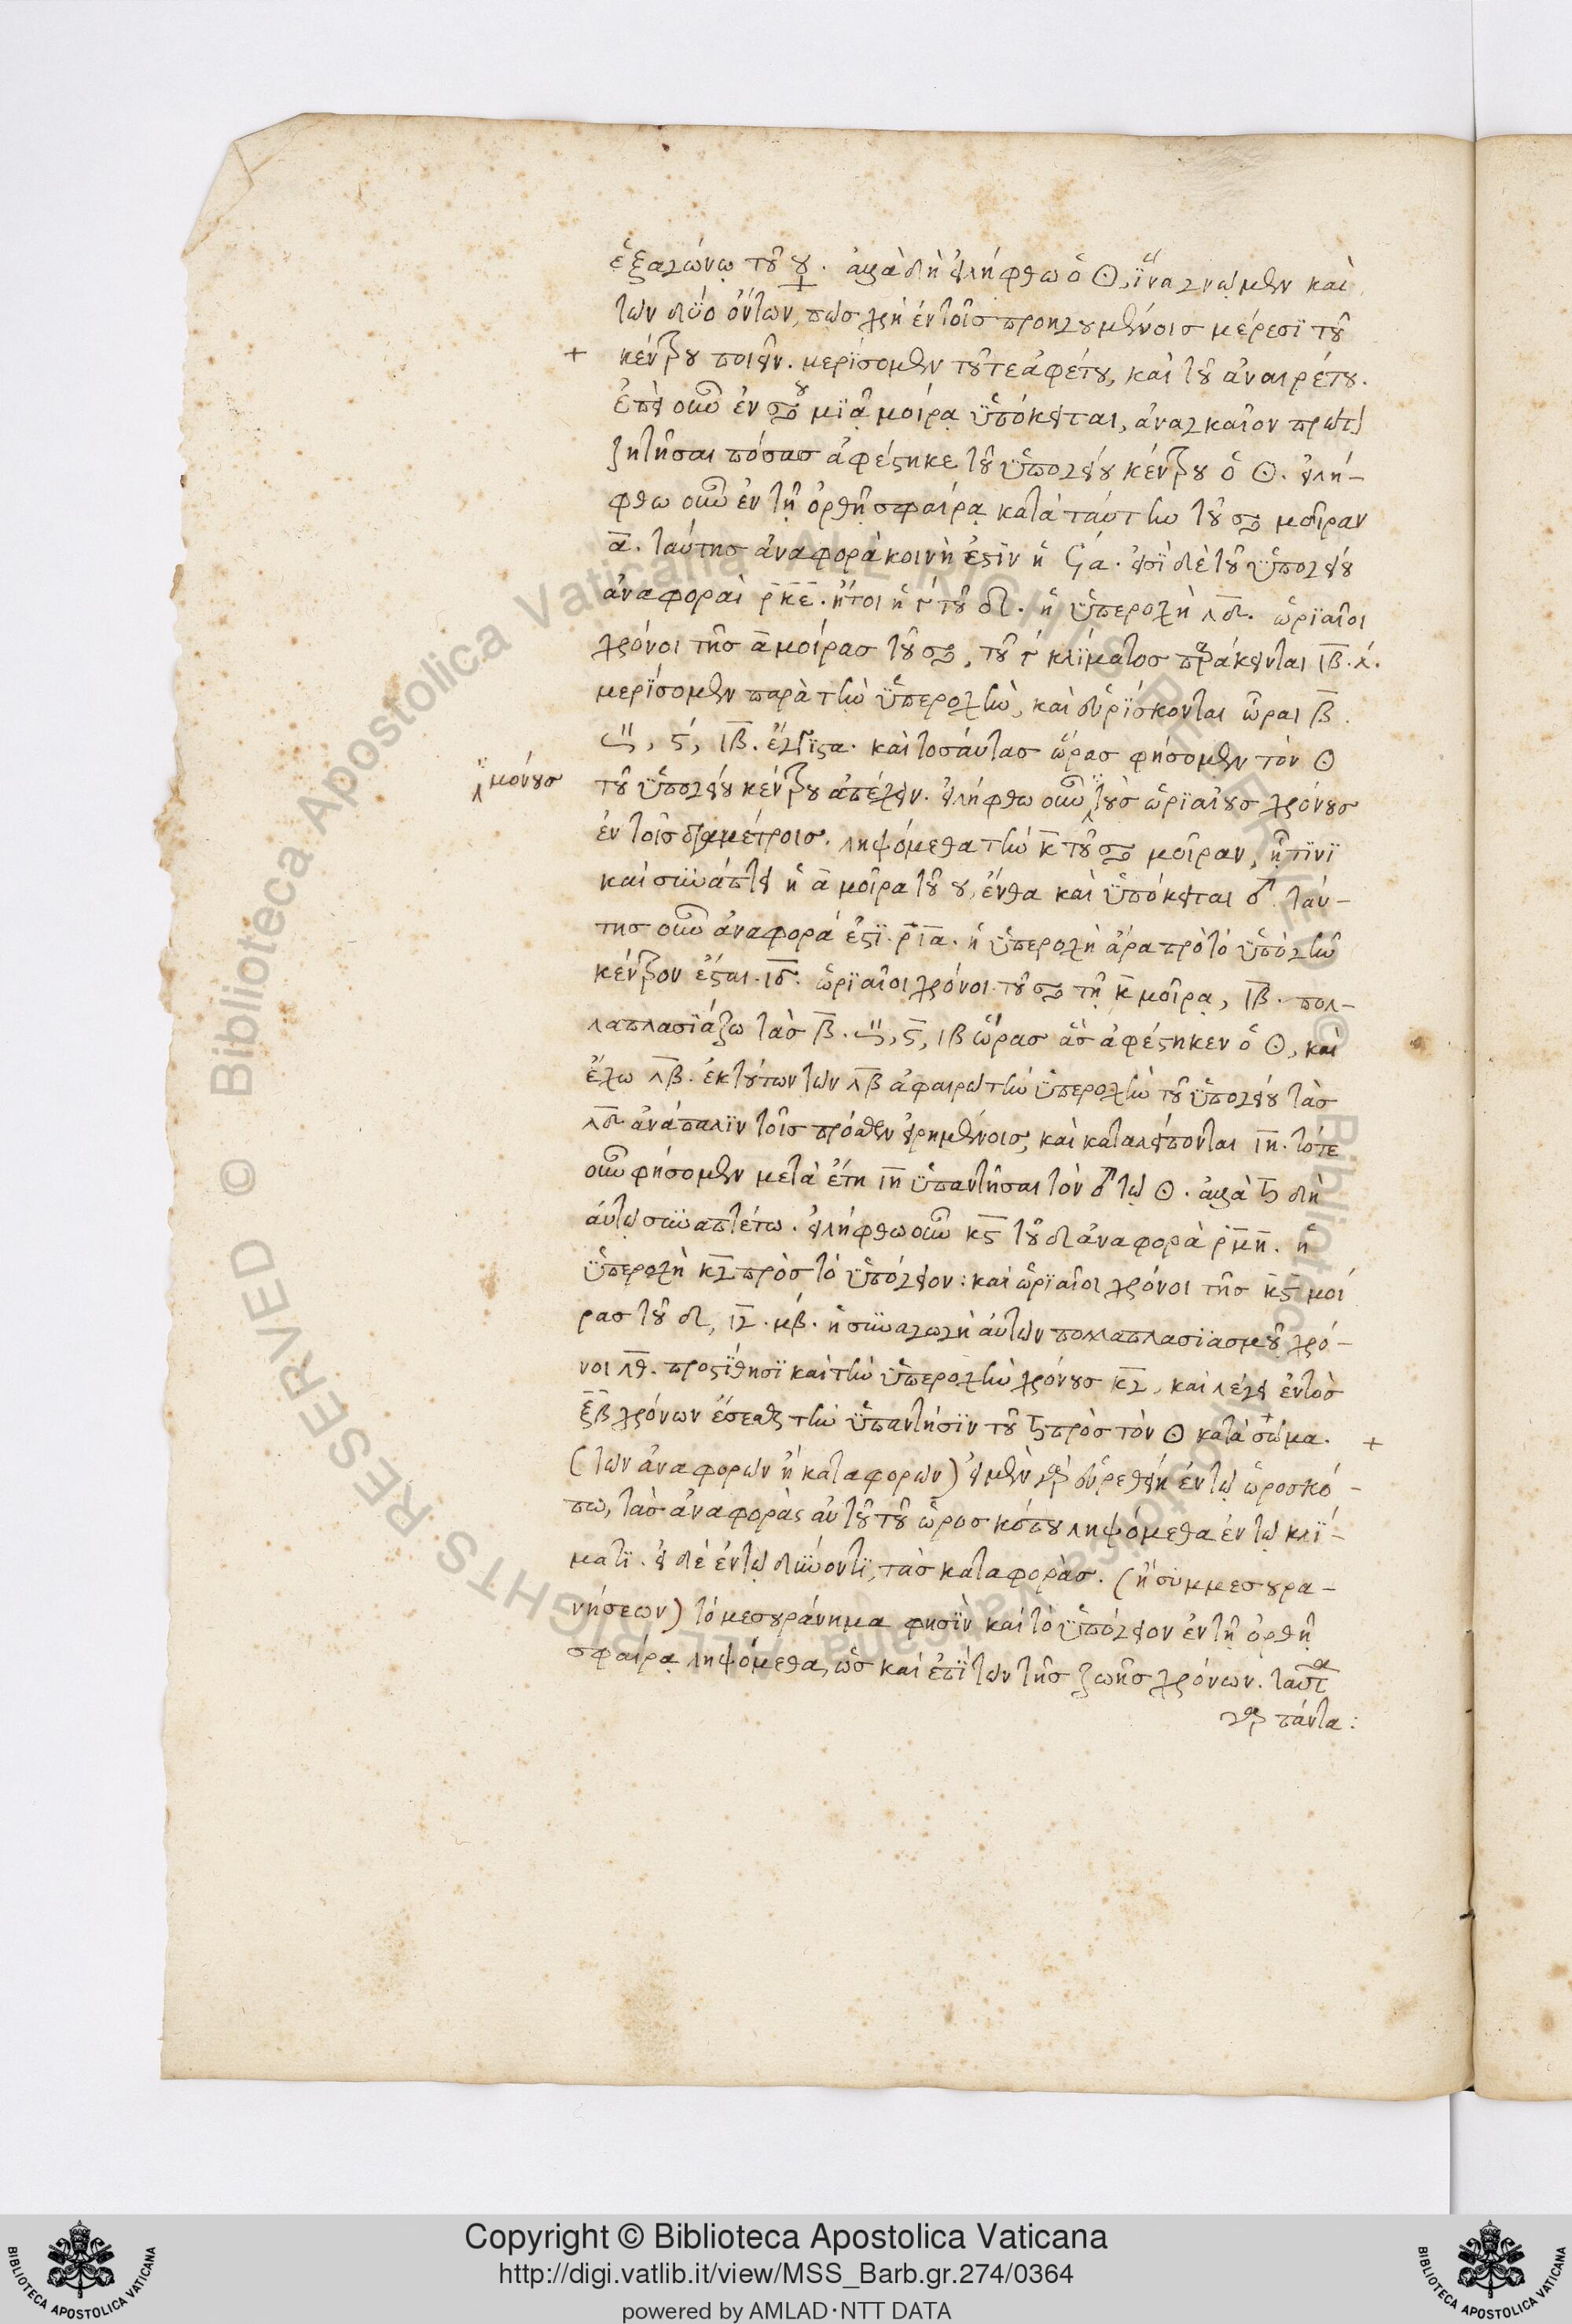 ἑξαγώνῳ τοῦ ☿. ἀλλὰ δὴ εἰλήφθω ὁ ☉, ἵνα γνῶμεν καὶ
τῶν δύο ὄντων, πῶς χρὴ ἐν τοῖς προηγουμένοις μέρεσι τοῦ
+ κέντρου ποιεῖν. μερίσομεν τοῦ τε ἀφέτου, καὶ τοῦ ἀναιρέτου.
ἐπεὶ οὖν ἐν ♋ου μιᾷ μοίρᾳ ὑπόκειται, ἀναγκαῖον πρῶτον
ζητῆσαι πόσας ἀφέστηκε τοῦ ὑπογείου κέντρου ὁ ☉. εἰλή-
φθω οὖν ἐν τῇ ὀρθῇ σφαίρᾳ κατὰ ταύτην τοῦ ♋ μοῖραν
α. ταύτης ἀναφορὰ κοινὴ ἐστὶν ἡ ϟα. εἰσὶ δὲ τοῦ ὑπογείου
ἀναφοραὶ ρκε. ἤτοι ἡ γ τοῦ ♌. ἡ ὑπεροχὴ λδ. ὡριαῖοι
χρόνοι τῆς α μοίρας τοῦ ♋, τοῦ γ κλίματος παράκεινται ιβ. λ.
μερίσομεν παρὰ τὴν ὑπεροχὴν, καὶ εὑρίσκονται ὧραι β.
ς, ιβ. ἔγγιστα. καὶ τοσαύτας ὥρας φήσομεν τὸν ☉
μόνους
τοῦ ὑπογείου κέντρου ἀπέχειν. εἰλήφθω οὖν τοὺς ὡριαίους χρόνους
ἐν τοῖς διαμέτροις. ληψόμεθα τὴν κ τοῦ ♋ μοῖραν, ᾗτινι
καὶ συνάπτει ἡ α μοῖρα τοῦ ♉, ἔνθα καὶ ὑπόκειται ♂. ταύ-
της οὖν ἀναφορά ἐστι. ρια. ἡ ὑπεροχὴ ἄρα πρὸς τὸ ὑπόγειον
κέντρον ἔσται. ιδ. ὡριαῖοι χρόνοι τοῦ ♋ τῇ κ μοίρᾳ, ιβ. πολ-
λαπλασιάζω τὰς β. ς, ιβ ὥρας ἃς ἀφέστηκεν ὁ ☉, καὶ
ἔχω λβ. ἐκ τούτων τῶν λβ ἀφαιρῶ τὴν ὑπεροχὴν τοῦ ὑπογείου τὰς
λδ ἀνάπαλιν τοῖς πρόσθεν εἰρημένοις, καὶ καταλείπονται ιη. τότε
οὖν φήσομεν μετὰ ἔτη ιη ὑπαντῆσαι τὸν ♂ τῷ ☉. ἀλλὰ ♄ δὴ
αὐτῷ συναπτέτω. εἰλήφθω οὖν κϛ τοῦ ♌ ἀναφορὰ ρμη. ἡ
ὑπεροχὴ κγ πρὸς τὸ ὑπόγειον: καὶ ὡριαῖοι χρόνοι τῆς κϛ μοί
ρας τοῦ ♌, ιγ. μβ. ἡ συναγωγὴ αὐτῶν πολλαπλασιασμοῦ χρό-
νοι λθ. προστίθησι καὶ τὴν ὑπεροχὴν χρόνους κγ, καὶ λέγει ἐντὸς
ξβ χρόνων ἔσεσθαι τὴν ὑπάντησιν τοῦ ♄ πρὸς τὸν ☉ κατὰ σῶμα. +
(τῶν ἀναφορῶν ἢ καταφορῶν) εἰ μὲν γὰρ εὑρεθείη ἐν τῷ ὡροσκό-
πῳ, τὰς ἀναφορὰς αὐτοῦ τοῦ ὡροσκόπου ληψόμεθα ἐν τῷ κλί-
ματι. εἰ δὲ ἐν τῷ δύνοντι, τὰς καταφοράς. (ἢ συμμεσουρα-
νήσεων) τὸ μεσουράνημα φησὶν καὶ τὸ ὑπόγειον ἐν τῇ ὀρθῇ
σφαίρᾳ ληψόμεθα, ὡς καὶ ἐπὶ τῶν τῆς ζωῆς χρόνων. ταῦτα
γὰρ πάντα:
Copyright © Biblioteca Apostolica Vaticana
http://digi.vatlib.it/view/MSS_Barb.gr.274/0364
powered by AMLAD·NTT DATA
BIBLIOTECA APOSTOLICA VATICANA
BIBLIOTECA APOSTOLICA VATICANA
© Biblioteca Apostolica Vaticana ALL RIGHTS RESERVED
© Biblioteca Apostolica Vaticana ALL RIGHTS RESERVED